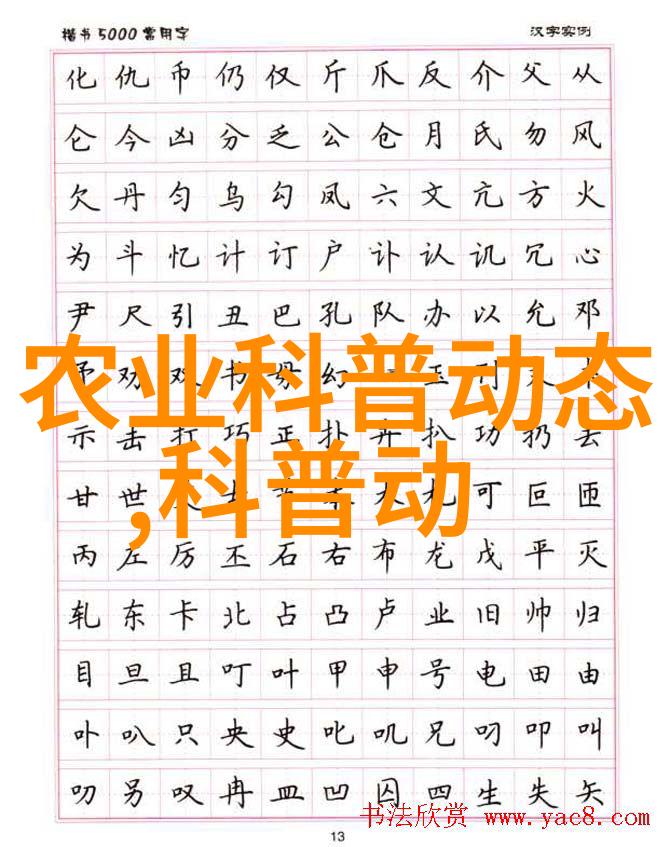 楷书5000常用字 汉字实例
化仇币仍仅斤爪反介父从
仑今凶分乏公仓月氏勿风
欠丹匀乌勾凤六文亢方火
为斗忆计订户讣认讥冗心
尹尺引丑巴孔队办以允邓
农业科普动态
示击打巧正扑卉扒功扔去
,科普动
甘世 可叵匝
丙左厉丕石右布龙戊平灭
轧东卡北占凸卢业旧帅归
目旦且叮叶甲申号电田由
卟叭只央史叱叽兄叼叩叫
叨另叹冉皿凹囚四生失矢
书法欣赏 www.yac8.com
13